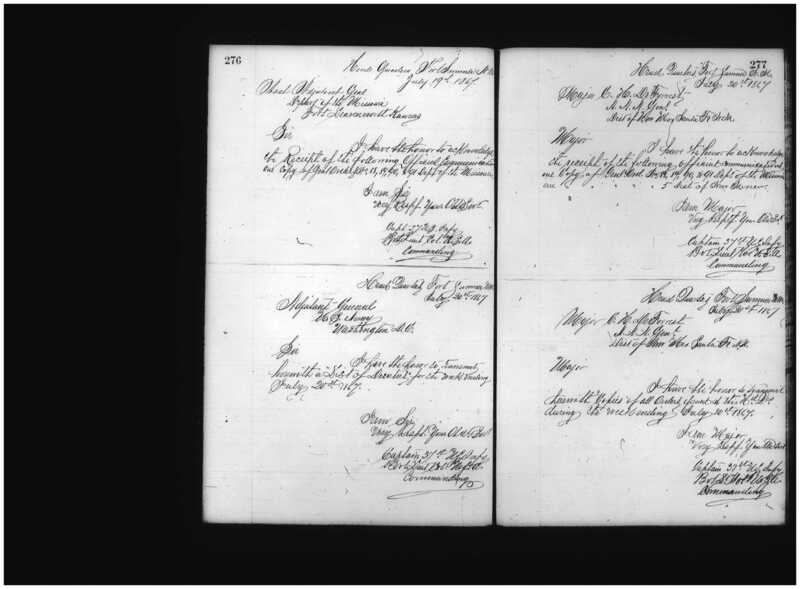 276
Head Quarters, Fort Sumner N.M.
July 19th 1867.
Adjutant Genl
Dept of the Missouri
Fort Leavenworth Kansas
Sir
I have the honor to acknowledge
the Receipt of the following Official Communications
one Copy of Genl Orders 11, 1490, & 91 Dept of the Missouri
I am Sir
Very Respf. Your Obt Servt
Capt 37th U.S. Infy
Bvt Lieut Col. U.S.A.
Commanding
Head Quarters Fort Sumner N.M.
July 20th 1867
Adjutant General
U.S. Army
Washington D.C.
Sir
I have the honor to transmit
herewith a List of for the week Ending
July 20th 1867.
I am Sir
Very Respf. Your Obdt Servt
Captain 37th U.S. Infy
Bvt Lieut Col. U.S.A.
Commanding
277
Head Quarters Fort Sumner N.M.
July 20th 1867
Major C. H. DeForrest
A.A.A. Genl
Dist of New Mex Santa Fe N.M.
Major
I have the honor to acknowledge
the receipt of the following official communications
one Copy of Genl Ord. & 91 Dept of the Missouri
one " " " " 5 Dist of New Mexico.
I am Major
Very Respf. Your Obt Svt
Captain 37th U.S. Infy
Bvt Lieut Col U.S.A
Commanding
Head Quarters Fort Sumner N.M.
July 20th 1867
Major C. H. DeForrest
A.A.A. Genl
Dist of New Mex Santa Fe N.M.
Major
I have the honor to transmit
herewith Copies of all Orders issued at this Hd. Qrs
during the week ending July 20th 1867.
I am Major
Very Respf. Your Obt Svt
Captain 37th U.S. Infy
Bvt Lt Col U.S.A.
Commanding